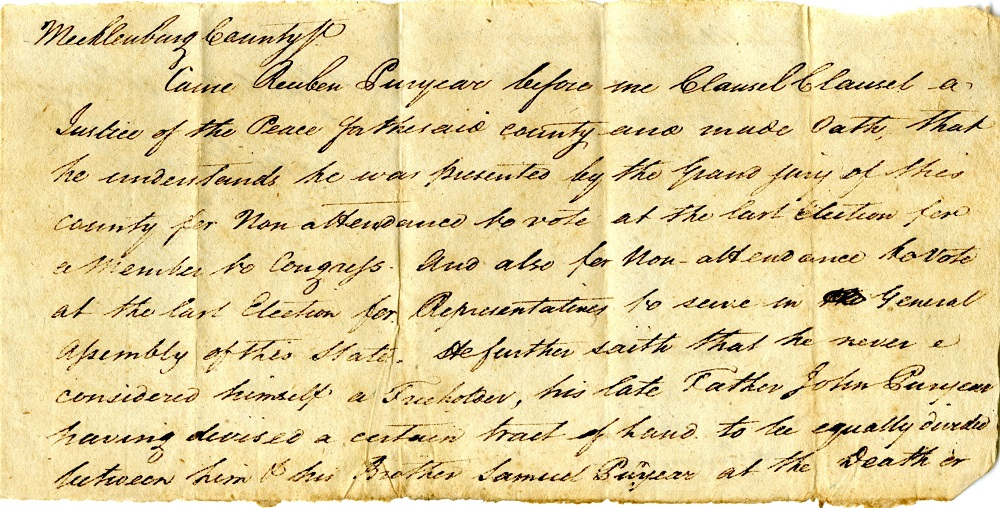 Mecklenburg County Sc
Came Reuben Puryear before me Clausel Clausel a
Justice of the Peace for the said county and made Oath, that
he understands he was presented by the Grand jury of this
county for Non attendance to vote at the last election for
a Member to Congress. And also for Non-attendance to vote
at the last Election for Representatives to serve in General
Assembly of this State. He further saith that he never
considered himself a Freeholder, his late Father John Puryear
having devised a certain tract of land to be equally divided
between him & his Brother Samuel Puryear at the Death or